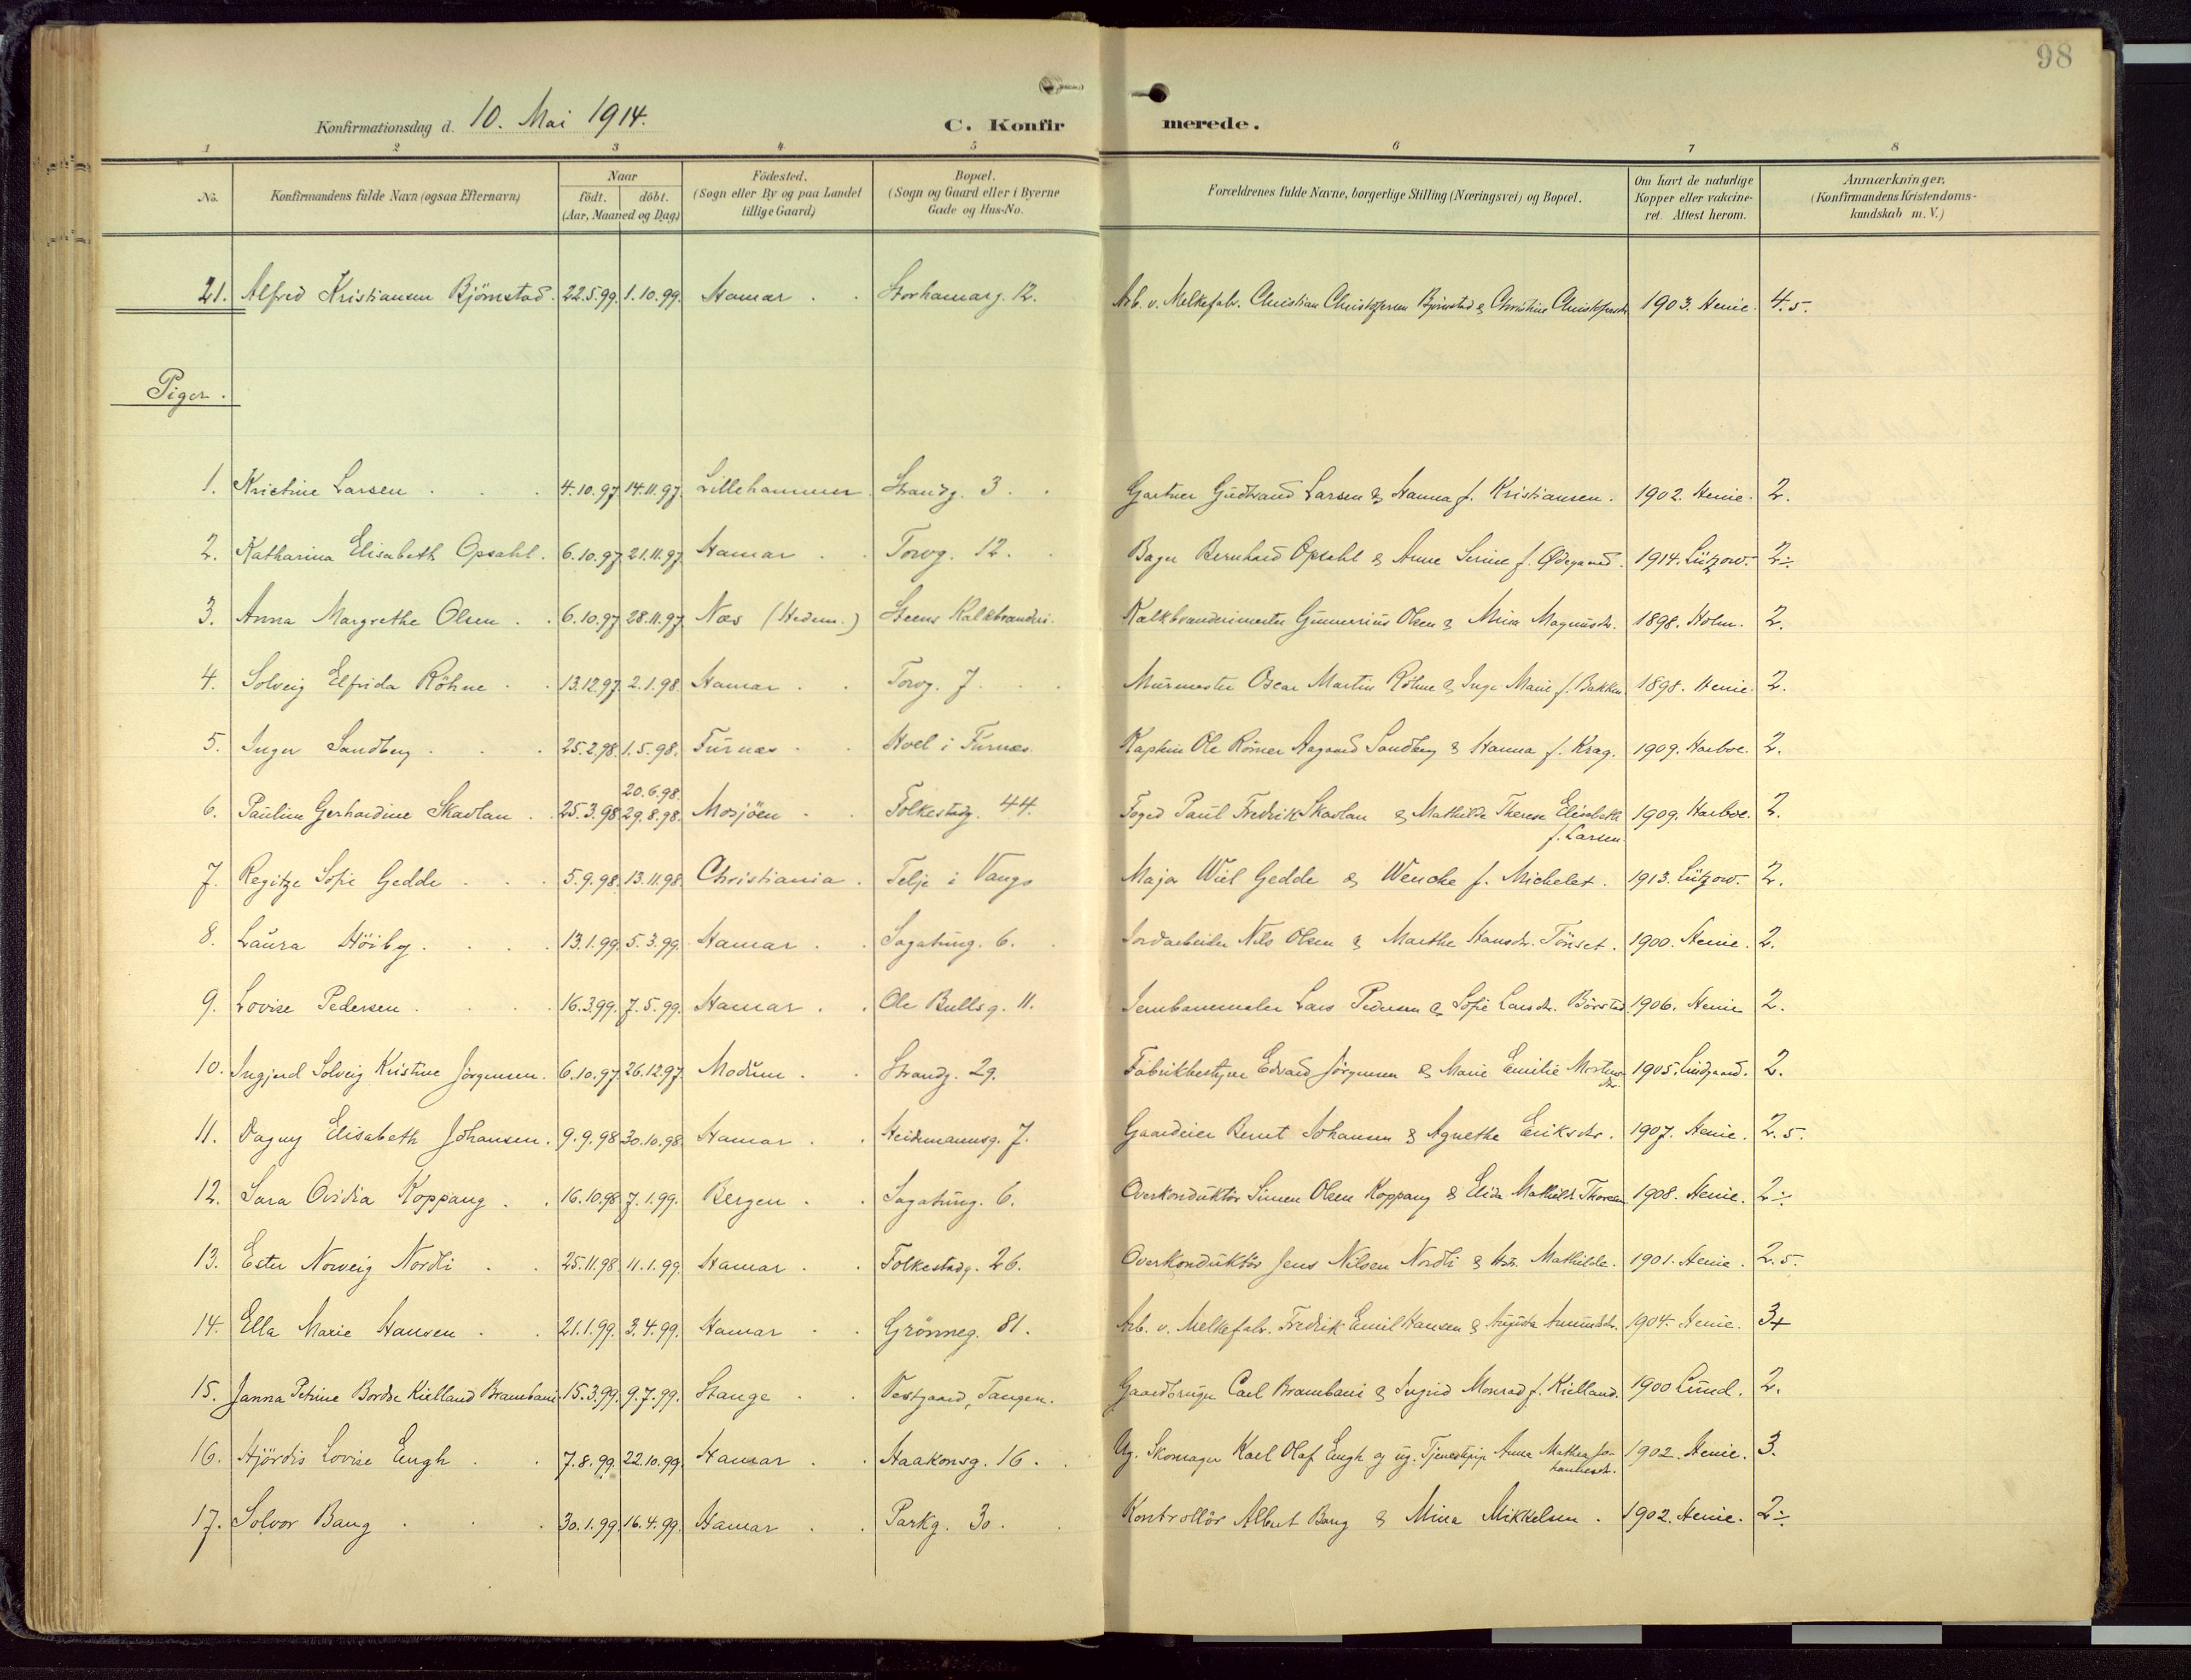 98
Konfirmationsdag d. 10. Mai 1914. C. Konfirmerede.
1 2 3 4 5 6 7 8
No. Konfirmandens fulde Navn (ogsaa Efternavn) Naar födt. döbt. (Aar, Maaned og Dag.) Födested. (Sogn eller By og paa Landet tillige Gaard.) Bopæl. (Sogn og Gaard eller i Byerne Gade og Hus-No. Forældrenes fulde Navne, borgerlige Stilling (Næringsvei) og Bopæl. Om havt de naturlige Kopper eller vakcineret. Attest herom. Anmærkninger. (Konfirmandens Kristendomskundskab m. V.)
21. Alfred Kristiansen Björnstad. 22.5.99. 1.10.99. Hamar Storhamarg. 12. Arb. v. Melkefabr. Christian Christophersen Björnstad & Christine Christophersdr. 1903. Henie. 4.5.
Piger.
1. Kristine Larsen 4.10.97 14.11.97. Lillehammer. Strandg. 3. Gartner Gudbrand Larsen & Hanna f. Kristiansen. 1902. Henie. 2.
2. Katharina Elisabeth Opsahl. 6.10.97 21.11.97. Hamar Torvg. 12. Bager Bernhard Opsahl & Anne Serine f. Ødegaard. 1914. Lützow. 2÷
3. Anna Margrethe Olsen 6.10.97 28.11.97. Næs (Hedem.) Steens Kalkbrænderi. Kalkbrænderimester Gunnerius Olsen & Mina Magnusdr. 1898. Holm. 2.
4. Solveig Elfrida Röhne 13.12.97. 2.1.98. Hamar Torvg. 7 Murmester Oscar Martin Röhne & Inga Marie f. Bakken 1898. Henie. 2.
5. Inger Sandberg 25.2.98. 1.5.98. Furnæs Hoel i Furnæs. Kaptein Ole Römer Aagaard Sandberg & Hanna f. Krag. 1909. Harboe. 2.
6. Pauline Gerhardine Skavlan 25.3.98 20.6.98. 29.8.98. Mosjöen Folkestadg. 44. Foged Paul Fredrik Skavlan & Mathilde Therese Elisabeth f. Larsen. 1909. Harboe. 2.
7. Regitze Sofie Gedde 5.9.98. 13.11.98. Christiania Telje i Vangs Major Wiel Gedde & Wencke f. Michelet. 1913. Lützow. 2.
8. Laura Höiby. 13.1.99. 5.3.99. Hamar Sagatung. 6. Jordarbeider Nils Olsen & Marthe Hansdr. Tönset. 1900. Henie. 2.
9. Lovise Pedersen 16.3.99. 7.5.99. Hamar Ole Bullsg. 11. Jernbanemaler Lars Pedersen & Sofie Larsdr. Börstad 1906. Henie 2.
10. Ingjerd Solveig Kristine Jörgensen. 6.10.97. 26.12.97. Modum Strandg. 29. Fabrikbestyrer Edvard Jörgensen & Marie Emilie Mortensdr. 1905. Lindgaard. 2.
11. Dagny Elisabeth Johansen. 9.9.98 30.10.98. Hamar Heidmannsg. 7. Gaardeier Bernt Johansen & Agnethe Eriksdr. 1907. Henie. 2.5.
12. Sara Ovidia Koppang 16.10.98 7.1.99. Bergen Sagatung. 6. Overkonduktör Simen Olsen Koppang & Elida Mathilde Thoresen 1908. Henie. 2÷
13. Ester Norveig Nordli 25.11.98. 11.1.99. Hamar Folkestadg. 26. Overkonduktör Jens Nilsen Nordli & Hstr. Mathilde. 1901. Henie. 2.5.
14. Ella Marie Hansen 21.1.99. 3.4.99. Hamar Grönneg. 81. Arb. v. Melkefabr. Fredrik Emil Hansen & Augusta Amundsdr. 1904. Henie. 3+
15. Janna Petrine Bordse Kielland Brambani 15.3.99. 9.7.99. Stange Vestgaard, Tangen. Gaardbruger Carl Brambani & Ingrid Monrad f. Kielland. 1900 Lund. 2.
16. Hjördis Lovise Engh 7.8.99. 22.10.99. Hamar Haakonsg. 16. Ug. Skomager Karl Olaf Engh og ug. Tjenestepige Anna Mathea Johannesdr. 1902. Henie. 3.
17. Solvor Bang 30.1.99. 16.4.99. Hamar Parkg. 30. Kontrollör Albert Bang & Mina Mikkelsen. 1902. Henie. 2÷